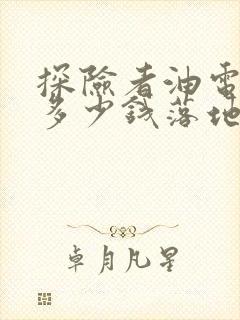 探險者油電
多少錢落地
卓月凡星